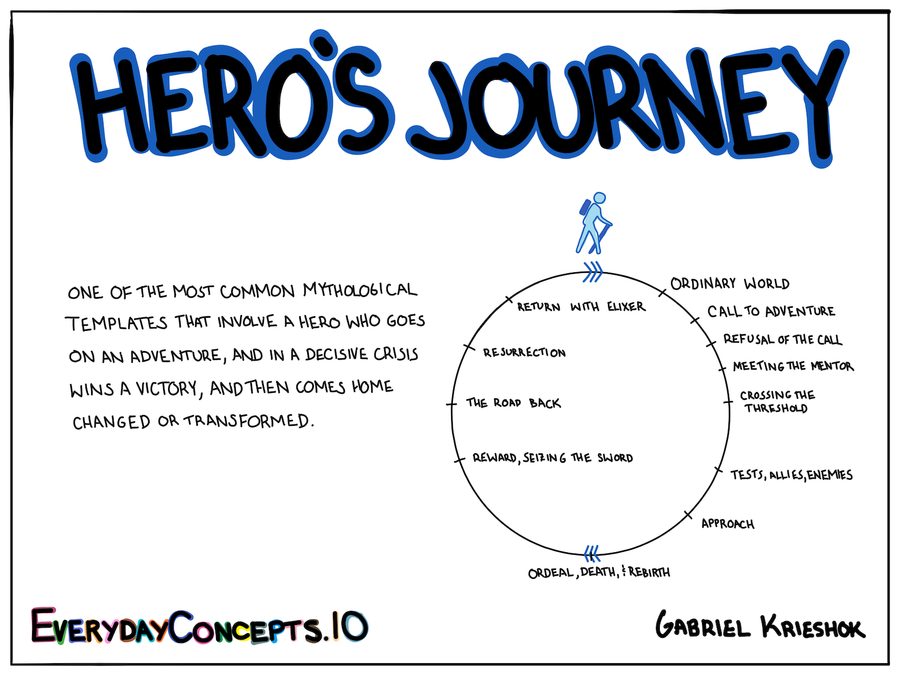 HERO'S JOURNEY
ONE OF THE MOST COMMON MYTHOLOGICAL
TEMPLATES THAT INVOLVE A HERO WHO GOES
ON AN ADVENTURE, AND IN A DECISIVE CRISIS
WINS A VICTORY, AND THEN COMES HOME
CHANGED OR TRANSFORMED.
ORDINARY WORLD
CALL TO ADVENTURE
REFUSAL OF THE CALL
MEETING THE MENTOR
CROSSING THE
THRESHOLD
TESTS, ALLIES, ENEMIES
APPROACH
ORDEAL, DEATH, & REBIRTH
REWARD, SEIZING THE SWORD
THE ROAD BACK
RESURRECTION
RETURN WITH ELIXER
EVERYDAYCONCEPTS.IO
GABRIEL KRIESHOK